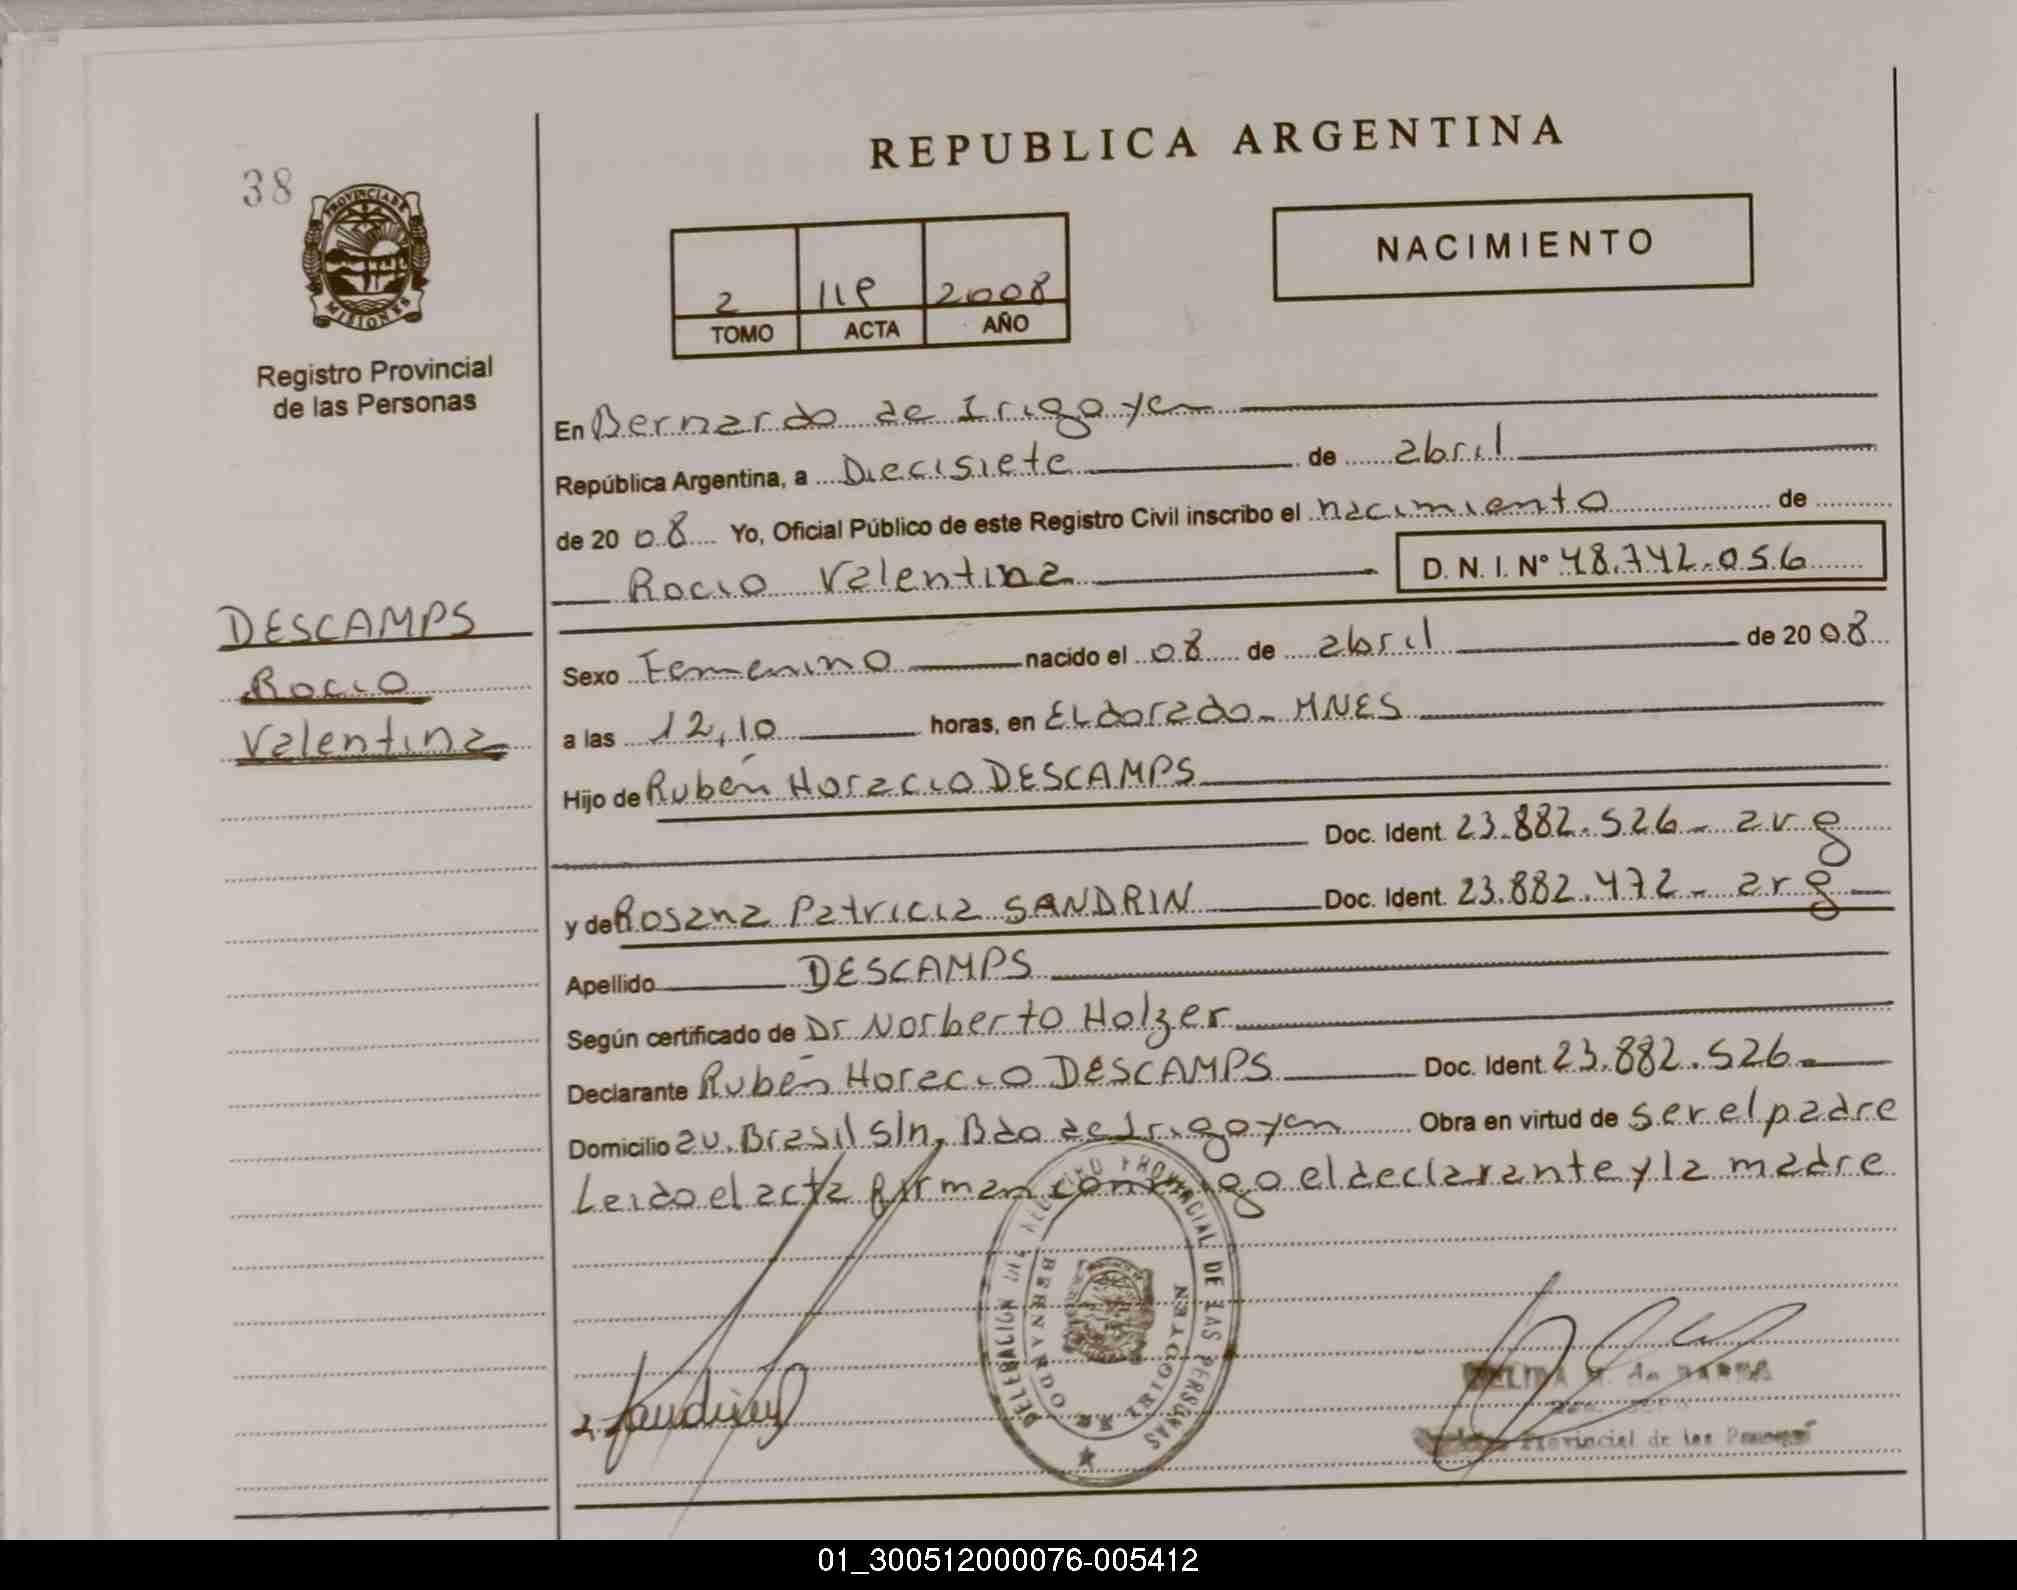 REPUBLICA ARGENTINA
38
PROVINCIA DE
MISIONES
Registro Provincial
de las Personas
NACIMIENTO
2 2008
TOMO ACTA AÑO
En Bernardo de Irigoyen
República Argentina, a Diecisiete de abril
de 20 08 Yo, Oficial Público de este Registro Civil inscribo el nacimiento de
Rocio Valentina D. N. I. Nº 48.742.056
DESCAMPS
Rocio
Valentina
Sexo Femenino nacido el 08 de abril de 20 08
a las 12,10 horas, en Eldorado - MNES
Hijo de Rubén Horacio DESCAMPS
Doc. Ident. 23.882.526 - arg
y de Rosana Patricia SANDRIN Doc. Ident. 23.882.472 - arg
Apellido DESCAMPS
Según certificado de Dr Norberto Holzer
Declarante Rubén Horacio DESCAMPS Doc. Ident. 23.882.526 -
Domicilio av. Brasil s/n, Bdo de Irigoyen Obra en virtud de ser el padre
Leido el acta firman conmigo el declarante y la madre
DELEGACION DEL REGISTRO PROVINCIAL DE LAS PERSONAS
BERNARDO IRIGOYEN
Provincial de las Personas
01_300512000076-005412